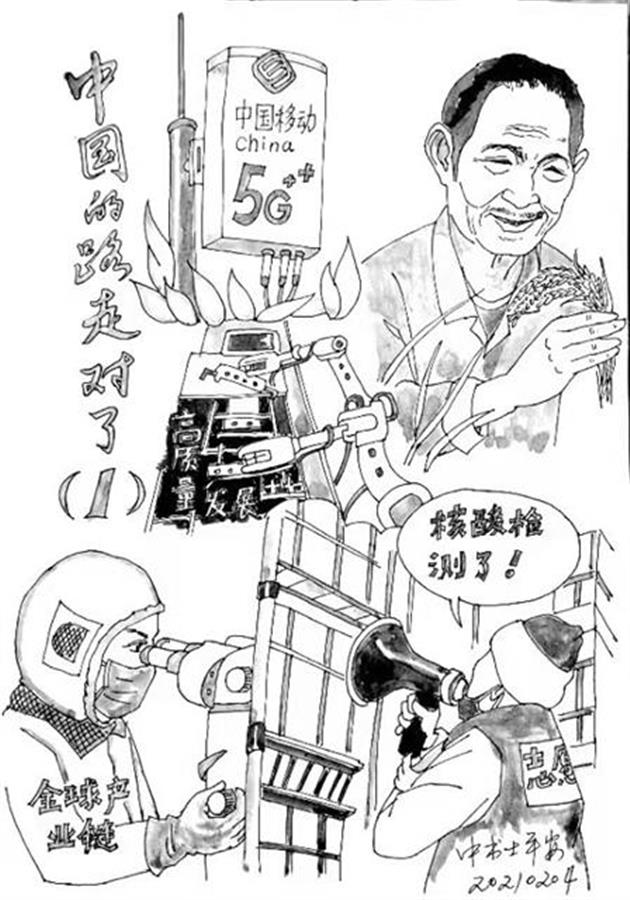 中国的路走对了
(1)
中国移动
China
5G++
高质
量发展
核酸检
测了!
全球产
业链
志愿
中书士平安
20210204